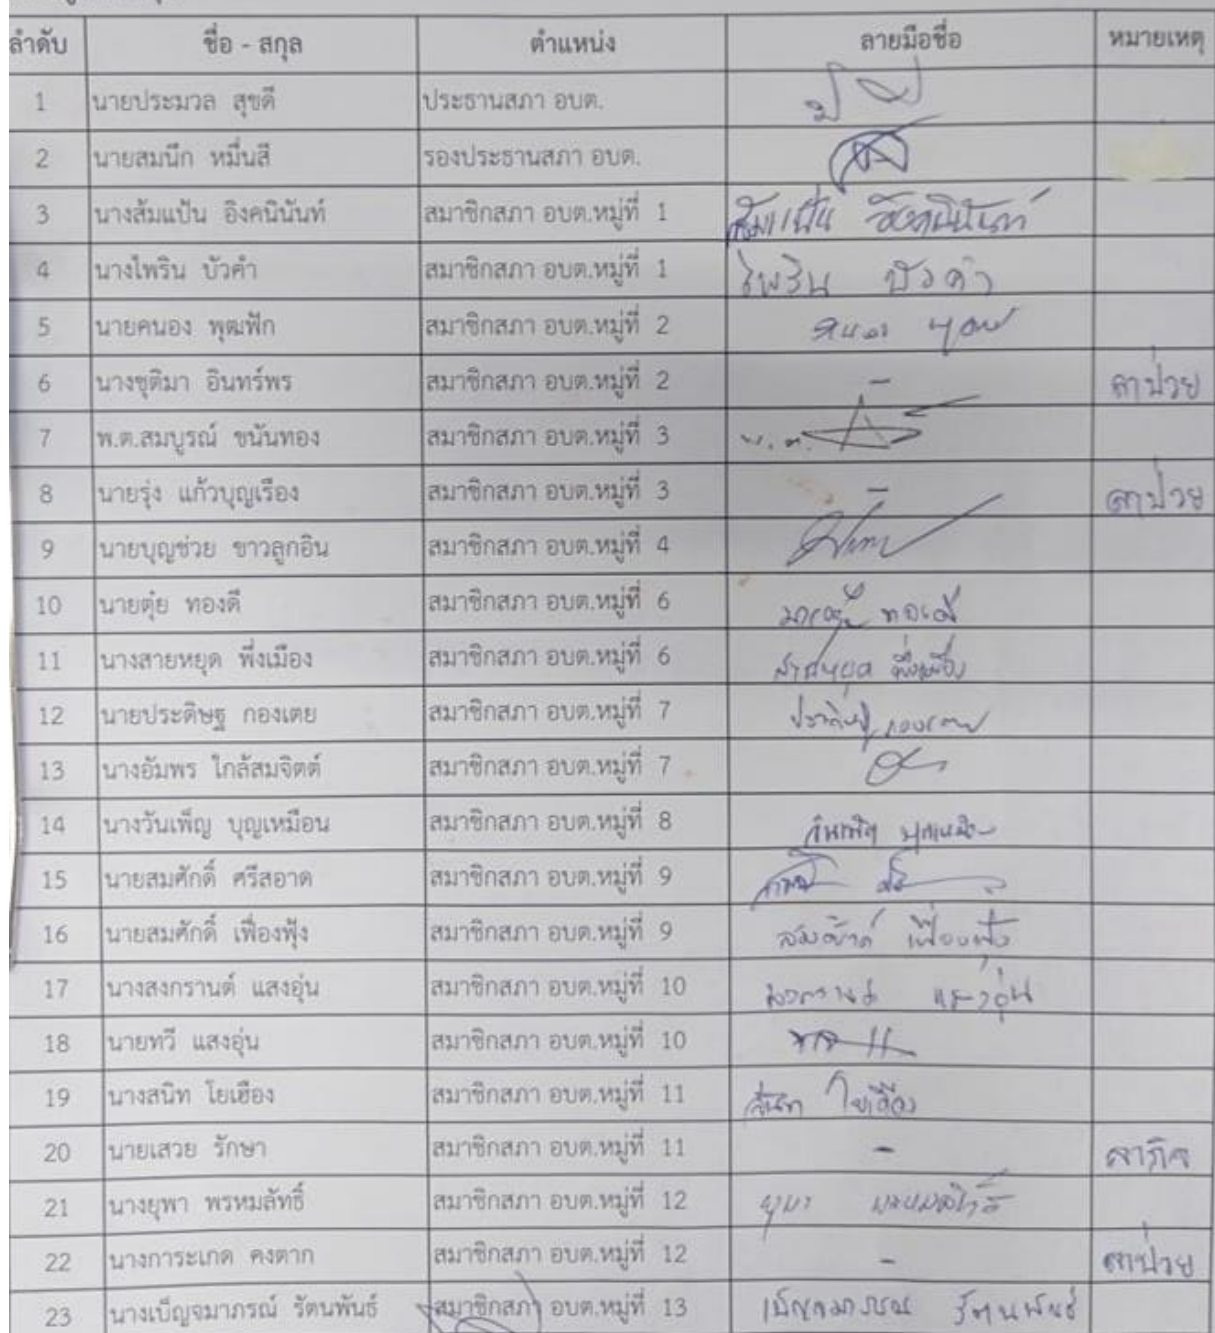 ลำดับ ชื่อ - สกุล ตำแหน่ง ลายมือชื่อ หมายเหตุ
1 นายประมวล สุขดี ประธานสภา อบต.
2 นายสมนึก หมื่นสี รองประธานสภา อบต.
3 นางส้มแป้น อิงคนินันท์ สมาชิกสภา อบต.หมู่ที่ 1 ส้มแป้น อิงคนินันท์
4 นางไพริน บัวคำ สมาชิกสภา อบต.หมู่ที่ 1 ไพริน บัวคำ
5 นายคนอง พุฒฟัก สมาชิกสภา อบต.หมู่ที่ 2
6 นางชุติมา อินทร์พร สมาชิกสภา อบต.หมู่ที่ 2 - ลาป่วย
7 พ.ต.สมบูรณ์ ขนันทอง สมาชิกสภา อบต.หมู่ที่ 3 พ.ต.
8 นายรุ่ง แก้วบุญเรือง สมาชิกสภา อบต.หมู่ที่ 3 - ลาป่วย
9 นายบุญช่วย ขาวลูกอิน สมาชิกสภา อบต.หมู่ที่ 4
10 นายตุ๋ย ทองดี สมาชิกสภา อบต.หมู่ที่ 6 ทองดี
11 นางสายหยุด พึ่งเมือง สมาชิกสภา อบต.หมู่ที่ 6 สายหยุด พึ่งเมือง
12 นายประดิษฐ กองเตย สมาชิกสภา อบต.หมู่ที่ 7 ประดิษฐ กองเตย
13 นางอัมพร ใกล้สมจิตต์ สมาชิกสภา อบต.หมู่ที่ 7
14 นางวันเพ็ญ บุญเหมือน สมาชิกสภา อบต.หมู่ที่ 8 วันเพ็ญ บุญเหมือน
15 นายสมศักดิ์ ศรีสอาด สมาชิกสภา อบต.หมู่ที่ 9
16 นายสมศักดิ์ เฟื่องฟุ้ง สมาชิกสภา อบต.หมู่ที่ 9 สมศักดิ์ เฟื่องฟุ้ง
17 นางสงกรานต์ แสงอุ่น สมาชิกสภา อบต.หมู่ที่ 10 สงกรานต์ แสงอุ่น
18 นายทวี แสงอุ่น สมาชิกสภา อบต.หมู่ที่ 10
19 นางสนิท โยเฮือง สมาชิกสภา อบต.หมู่ที่ 11 สนิท โยเฮือง
20 นายเสวย รักษา สมาชิกสภา อบต.หมู่ที่ 11 - ลากิจ
21 นางยุพา พรหมลัทธิ์ สมาชิกสภา อบต.หมู่ที่ 12 ยุพา พรหมลัทธิ์
22 นางการะเกด คงตาก สมาชิกสภา อบต.หมู่ที่ 12 - ลาป่วย
23 นางเบ็ญจมาภรณ์ รัตนพันธ์ สมาชิกสภา อบต.หมู่ที่ 13 เบ็ญจมาภรณ์ รัตนพันธ์